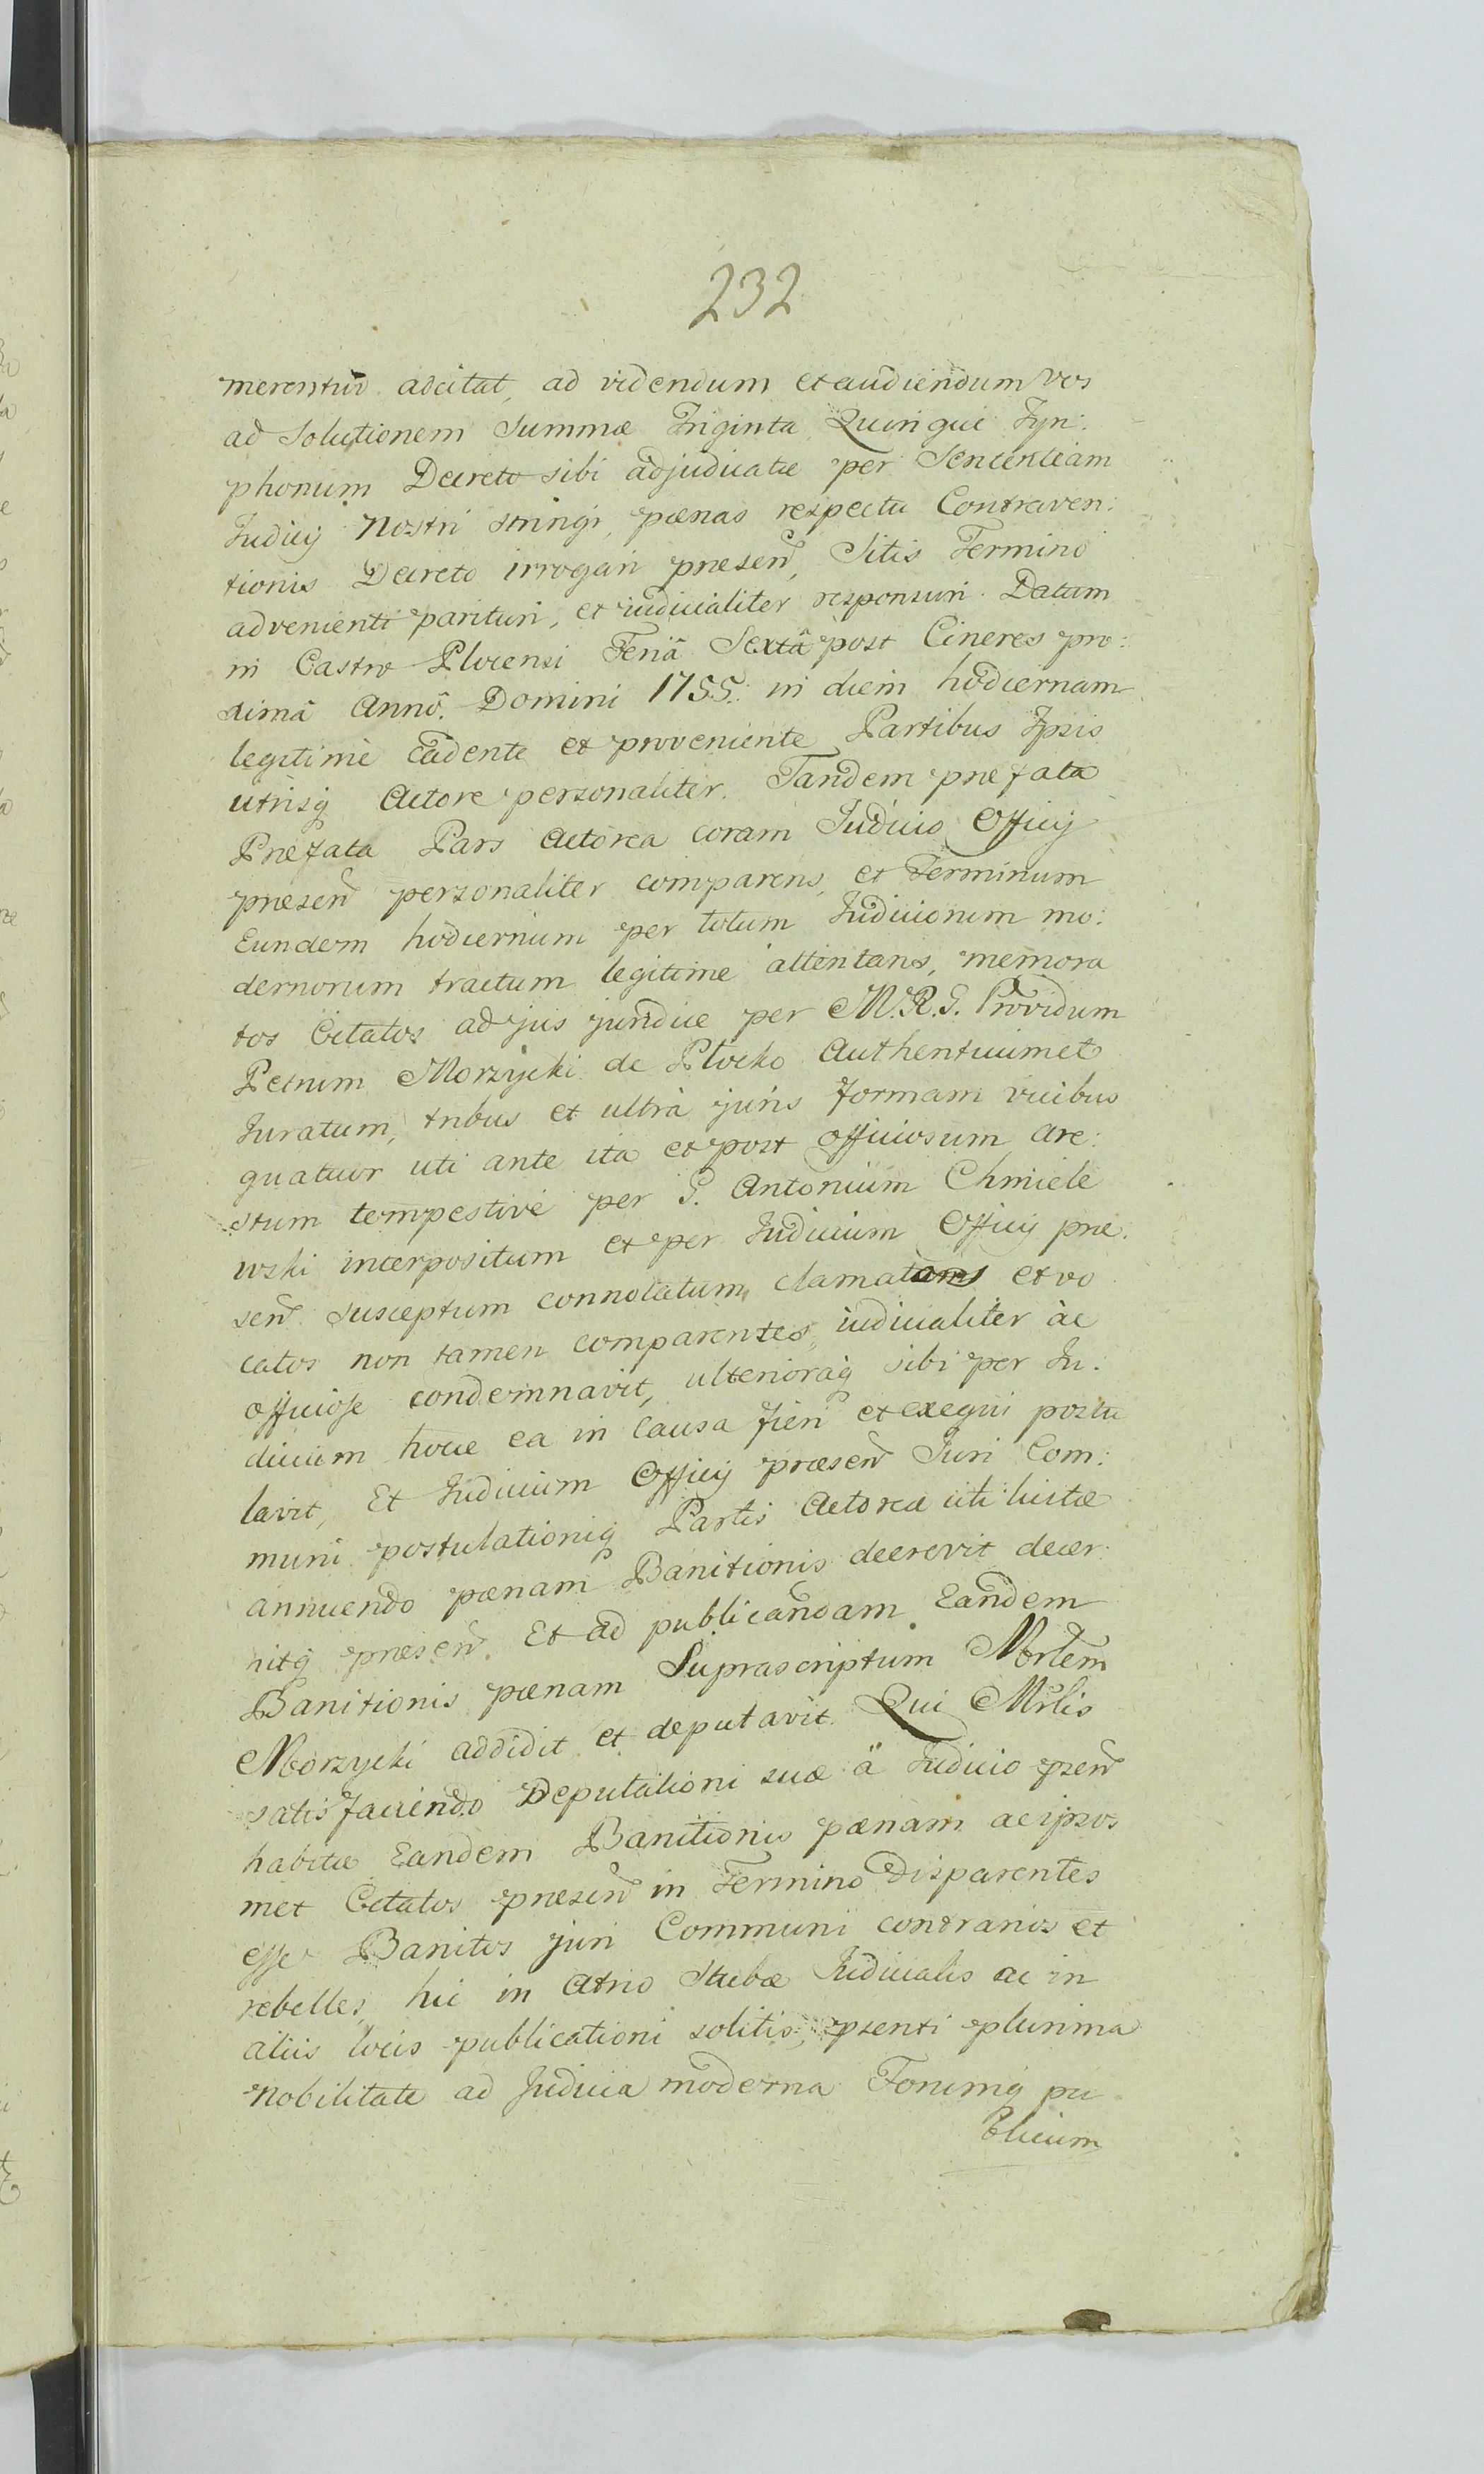 232
merentur adcitat, ad videndum et audiendum vos
ad Solutionem Summæ Triginta Quinque Tyn:
phonum Decreto sibi adjudicatæ per Sententiam
Judicij Nostri stringi, pænas respectu Contraven:
tionis Decreto irrogari præsen, Sitis Termino
advenienti parituri, et iudicialiter responsuri. Datum
in Castro Plocensi Feriâ Sextâ post Cineres pro:
ximâ Annô. Domini 1755. in diem hodiernam
legitimè cadente et proveniente Partibus Ipsis
utrisq Actore personaliter. Tandem præfata
Præfata Pars Actorea coram Judicio Officij
præsen personaliter comparens, et Terminum
Eundem hodiernum per totum Judiciorum mo:
dernorum tractum legitime attentans, memora
tos Citatos ad jus juridice per M.R.G. Providum
Petrum Morzycki de Plocko Authenticumet
Juratum, tribus et ultrà juris formam vicibus
quatuor uti ante ita et post officiosum are:
stum tempestivè per G. Antonium Chmiele
wski interpositum et per Judicium Officij præ:
sen susceptum connotatum, clamatos et vo
catos non tamen comparentes, iudicialiter àc
officiose condemnavit, ulterioraq sibi per Ju:
dicium hocce ea in Causa fieri et exequi postu
lavit, Et Judicium Officij præsen Juri Com:
muni postulationiq Partis Actoreæ uti iustæ
annuendo pænam Banitionis decrevit decer:
nitq præsen. Et ad publicandam Eandem
Banitionis pænam Suprascriptum Mrlem
Morzycki addidit et deputavit. Qui Mrlis
satisfaciendo Deputationi suæ ä Judicio psen
habitæ Eandem Banitionis pænam ac ipsos
met Citatos præsen in Termino Disparentes
esse Banitos juri Communi contrarios et
rebelles, hic in Atrio Stubæ Judicialis ac in
aliis locis publicationi solitis, psenti plurima
Nobilitate ad Judicia moderna Forumq pu
blicum